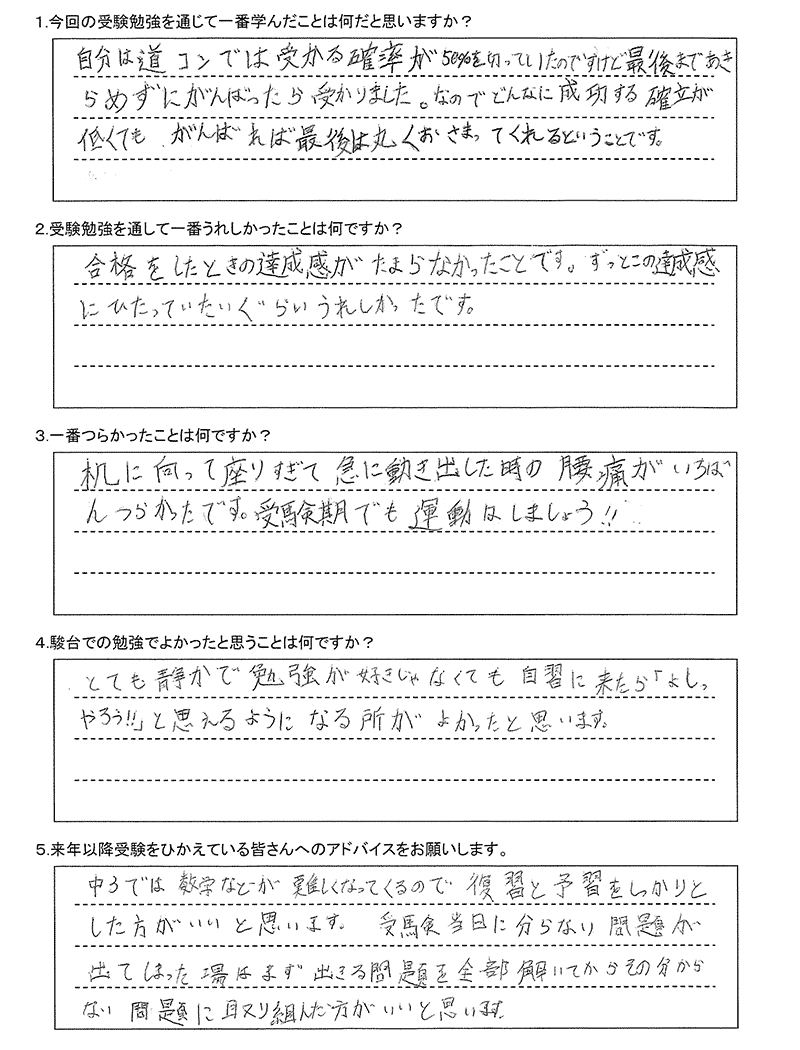 1.今回の受験勉強を通じて一番学んだことは何だと思いますか？
自分は道コンでは受かる確率が50%を切っていたのですけど最後まであき
らめずにがんばったら受かりました。なのでどんなに成功する確立が
低くても がんばれば最後は丸くおさまってくれるということです。
2.受験勉強を通して一番うれしかったことは何ですか？
合格をしたときの達成感がたまらなかったことです。ずっとこの達成感
にひたっていたいぐらいうれしかったです。
3.一番つらかったことは何ですか？
机に向って座りすぎて急に動き出した時の腰痛がいちば
んつらかったです。受験期でも運動はしましょう!!
4.駿台での勉強でよかったと思うことは何ですか？
とても静かで勉強が好きじゃなくても自習に来たら「よしっ
やろう!!」と思えるようになる所がよかったと思います。
5.来年以降受験をひかえている皆さんへのアドバイスをお願いします。
中3では数学などが難しくなってくるので復習と予習をしっかりと
した方がいいと思います。 受験当日に分らない問題が
出てしまった場はまず出きる問題を全部解いてからその分から
ない問題に取り組んだ方がいいと思います